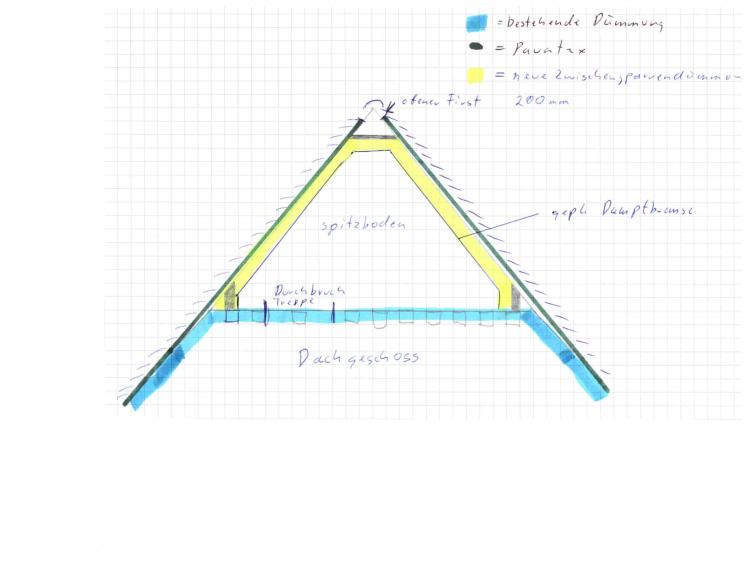 = bestehende Dämmung
= Pavatex
= neue Zwischensparrendämmun
200mm
offener First
gepl Dampfbremse
Spitzboden
Durchbruch
Treppe
Dachgeschoss